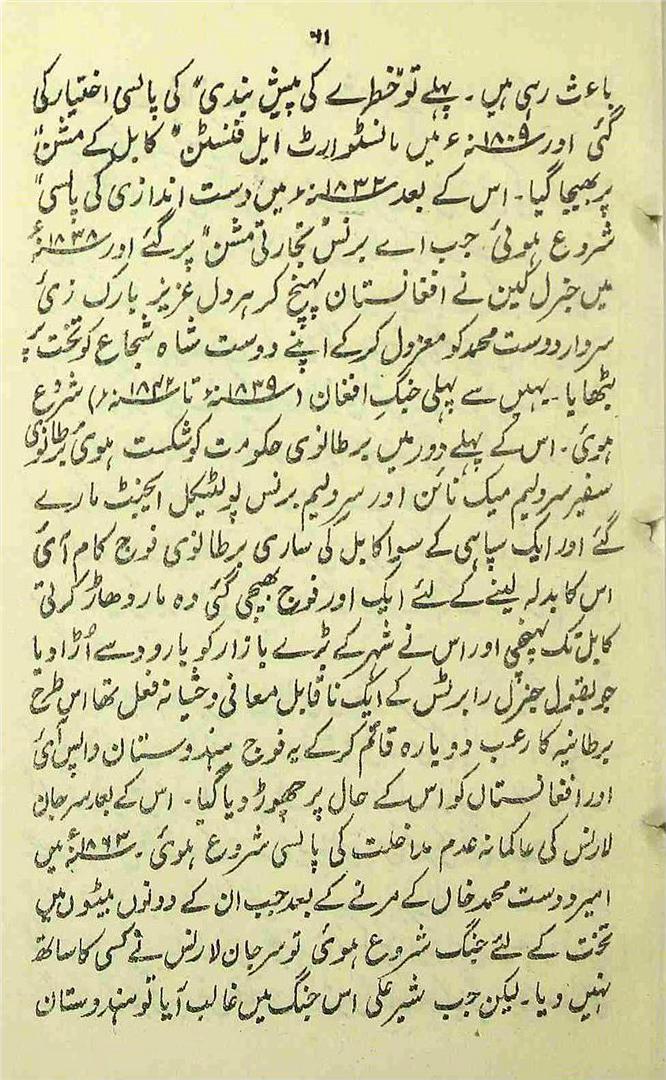 ۶۱
باعث رہی ہیں۔ پہلے تو "خطرے کی پیش بندی" کی پالسی اختیار کی
گئی اور ۱۸۰۹ء میں مانسٹوارٹ ایل فنسٹن "کابل کے مشن"
پر بھیجا گیا۔ اس کے بعد ۱۸۳۲ء میں دست اندازی کی پالسی"
شروع ہوئی جب اے برنس "تجارتی مشن" پر گئے اور ۱۸۳۸ء
میں جنرل کین نے افغانستان پہنچ کر ہر دل عزیز بارک زئی
سردار دوست محمد کو معزول کر کے اپنے دوست شاہ شجاع کو تخت پر
بٹھایا۔ یہیں سے پہلی جنگ افغان (۱۸۳۹ء تا ۱۸۴۲ء) شروع
ہوئی۔ اس کے پہلے دور میں برطانوی حکومت کو شکست ہوئی برطانوی
سفیر سر ولیم میک ناٹن اور سر ولیم برنس پولٹیکل ایجنٹ مارے
گئے اور ایک سپاہی کے سوا کابل کی ساری برطانوی فوج کام آئی
اس کا بدلہ لینے کے لئے ایک اور فوج بھیجی گئی وہ مار دھاڑ کرتی
کابل تک پہنچی اور اس نے شہر کے بڑے بازار کو بارود سے اُڑا دیا
جو بقول جنرل رابرٹس کے ایک ناقابل معافی وحشیانہ فعل تھا اس طرح
برطانیہ کا رعب دوبارہ قائم کر کے یہ فوج ہندوستان واپس آئی
اور افغانستان کو اس کے حال پر چھوڑ دیا گیا۔ اس کے بعد سر جان
لارنس کی عاکمانہ عدم مداخلت کی پالسی شروع ہوئی۔ ۱۸۶۳ء میں
امیر دوست محمد خاں کے مرنے کے بعد جب ان کے دونوں بیٹوں میں
تخت کے لئے جنگ شروع ہوئی تو سر جان لارنس نے کسی کا ساتھ
نہیں دیا۔ لیکن جب شیر علی اس جنگ میں غالب آیا تو ہندوستان